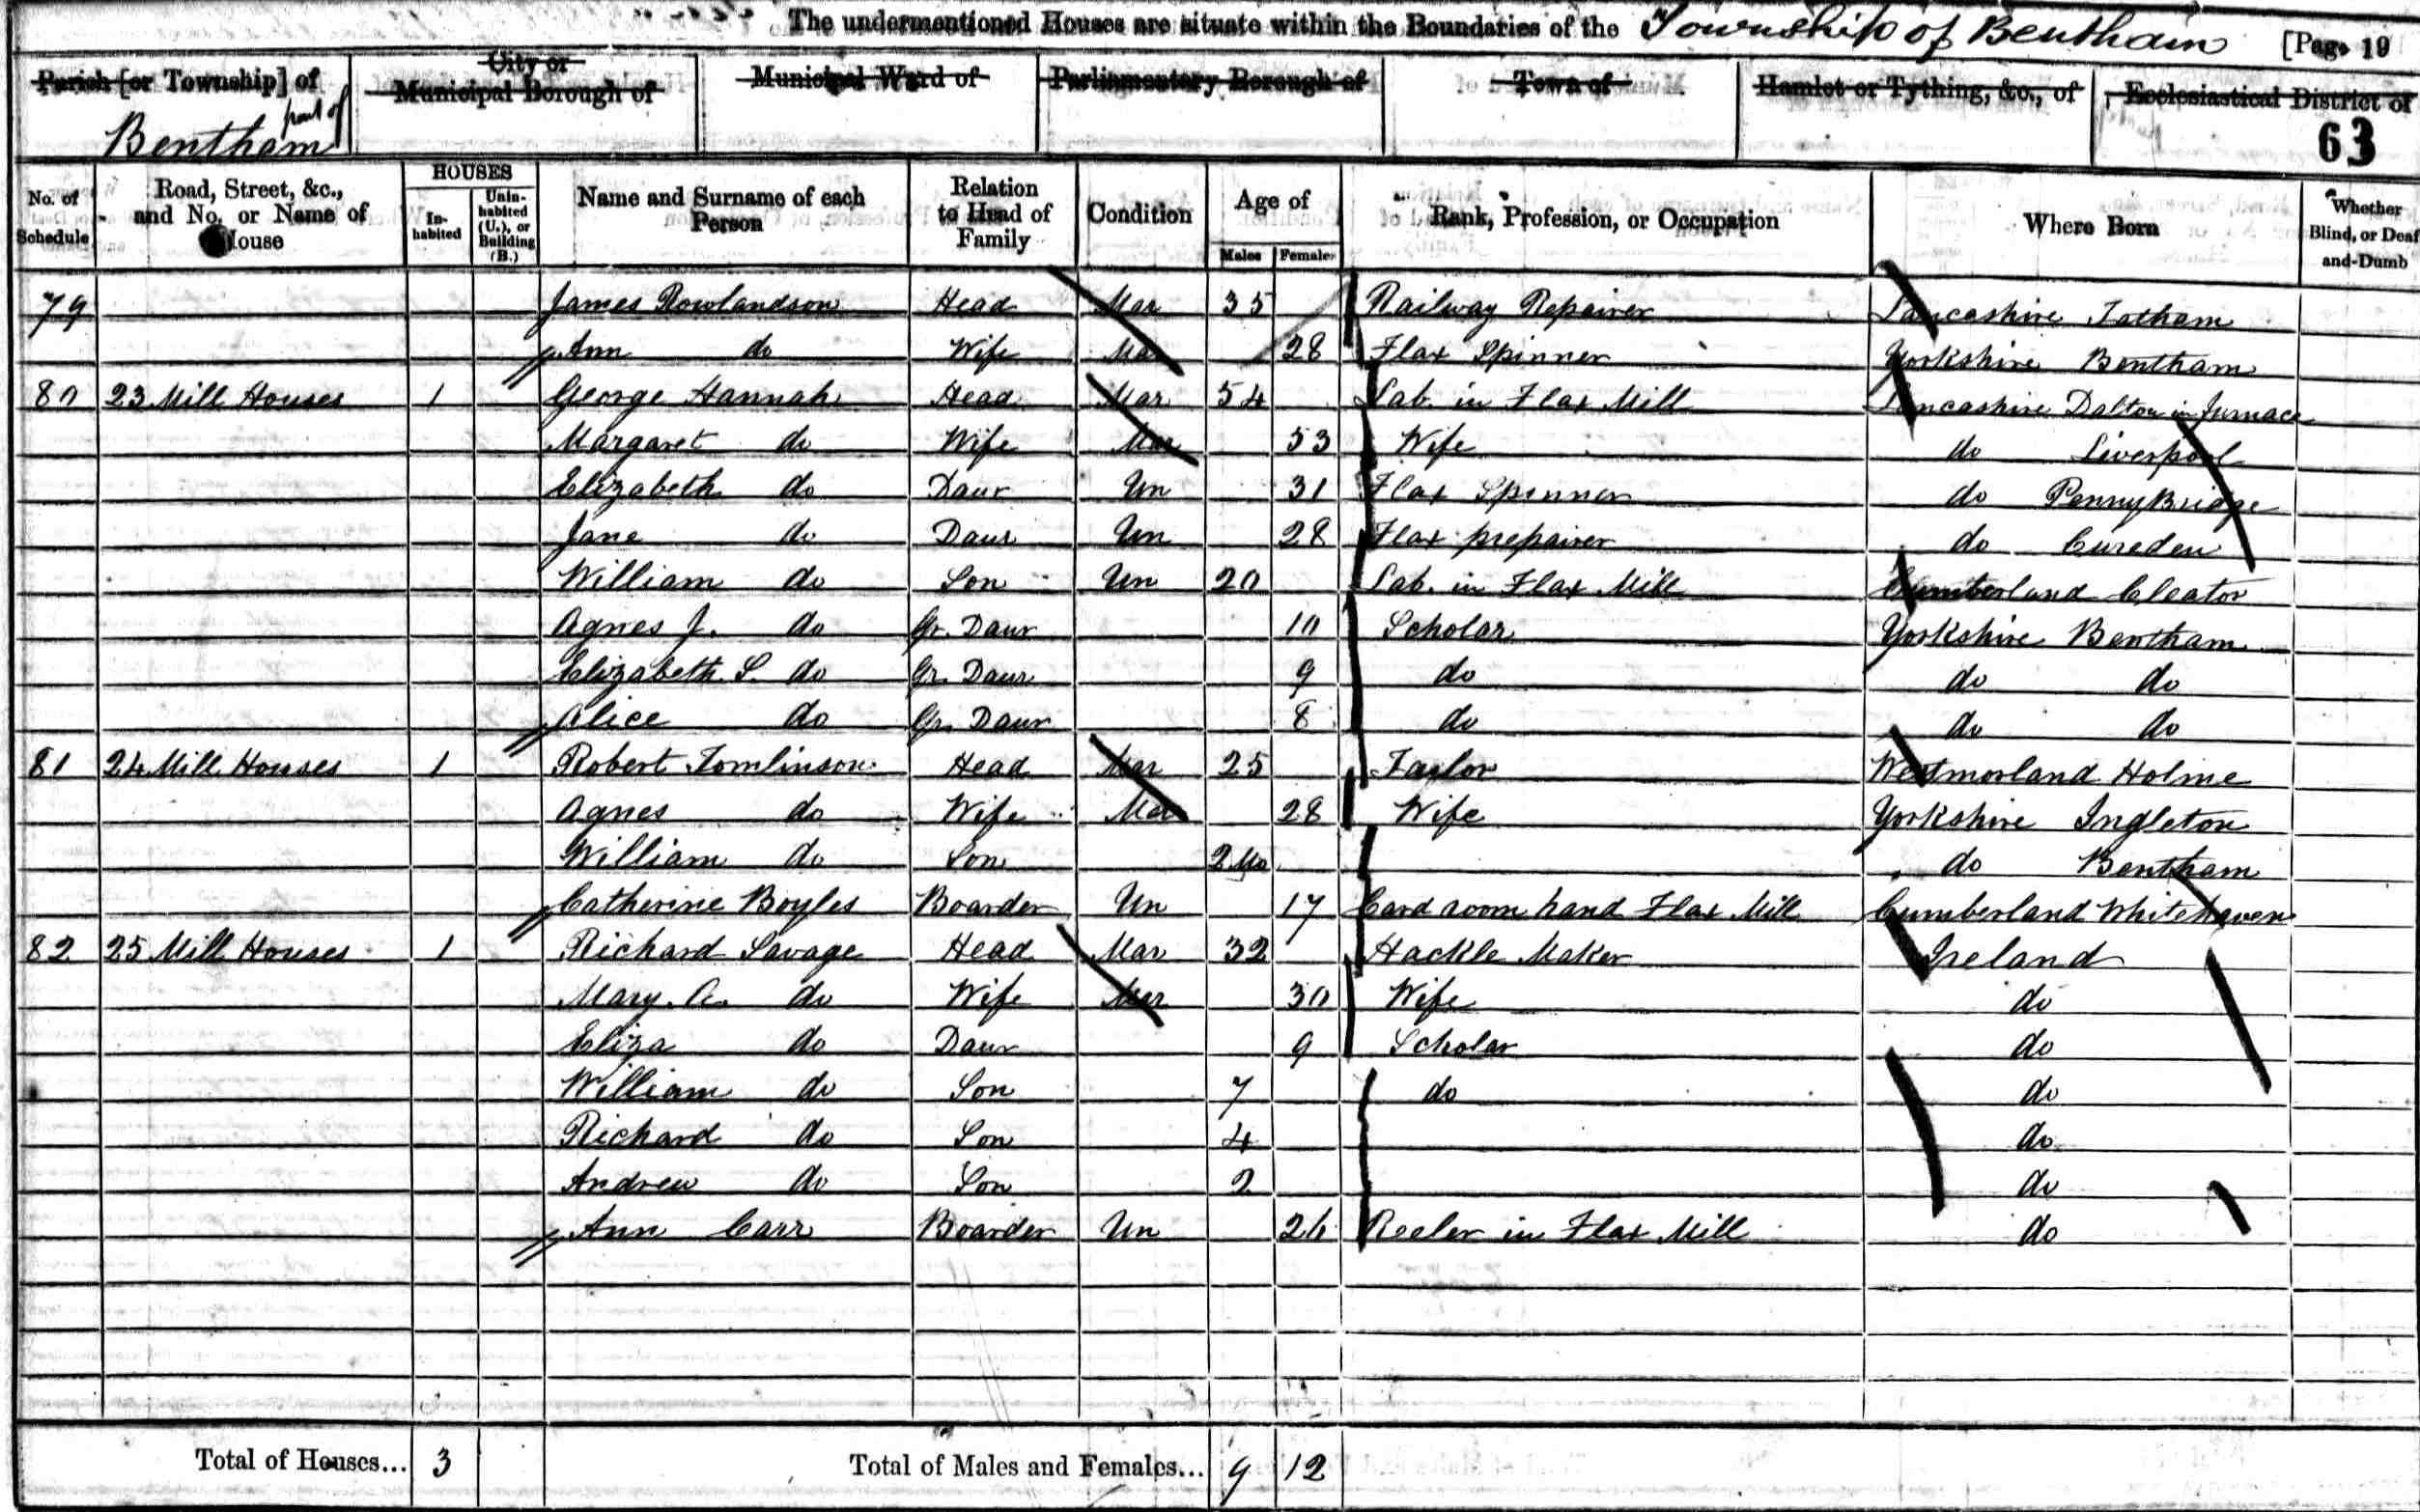 The undermentioned Houses are situate within the Boundaries of the Township of Bentham [Page 19
Parish [or Township] of part of Bentham
City or Municipal Borough of
Municipal Ward of
Parliamentary Borough of
Town of
Hamlet or Tything, &c., of
Ecclesiastical District of
63
No. of Schedule
Road, Street, &c., and No. or Name of House
HOUSES
Inhabited
Uninhabited (U.), or Building (B.)
Name and Surname of each Person
Relation to Head of Family
Condition
Age of
Males Females
Rank, Profession, or Occupation
Where Born
Whether Blind, or Deaf-and-Dumb
79 James Rowlandson Head Mar 35 Railway Repairer Lancashire Tatham
Ann do Wife Mar 28 Flax Spinner Yorkshire Bentham
80 23 Mill Houses 1 George Hannah Head Mar 54 Lab. in Flax Mill Lancashire Dalton in Furnace
Margaret do Wife Mar 53 Wife do Liverpool
Elizabeth do Daur Un 31 Flax Spinner do PennyBridge
Jane do Daur Un 28 Flax prepairer do Cureden
William do Son Un 20 Lab. in Flax Mill Cumberland Cleator
Agnes J. do Gr. Daur 10 Scholar Yorkshire Bentham
Elizabeth S. do Gr. Daur 9 do do do
Alice do Gr. Daur 8 do do do
81 24 Mill Houses 1 Robert Tomlinson Head Mar 25 Taylor Westmorland Holme
Agnes do Wife Mar 28 Wife Yorkshire Ingleton
William do Son 2 Mo do Bentham
Catherine Boyles Boarder Un 17 Card room hand Flax Mill Cumberland Whitehaven
82 25 Mill Houses 1 Richard Savage Head Mar 32 Hackle Maker Ireland
Mary. A. do Wife Mar 30 Wife do
Eliza do Daur 9 Scholar do
William do Son 7 do do
Richard do Son 4 do
Andrew do Son 2 do
Ann Carr Boarder Un 26 Reeler in Flax Mill do
Total of Houses... 3 Total of Males and Females... 9 12